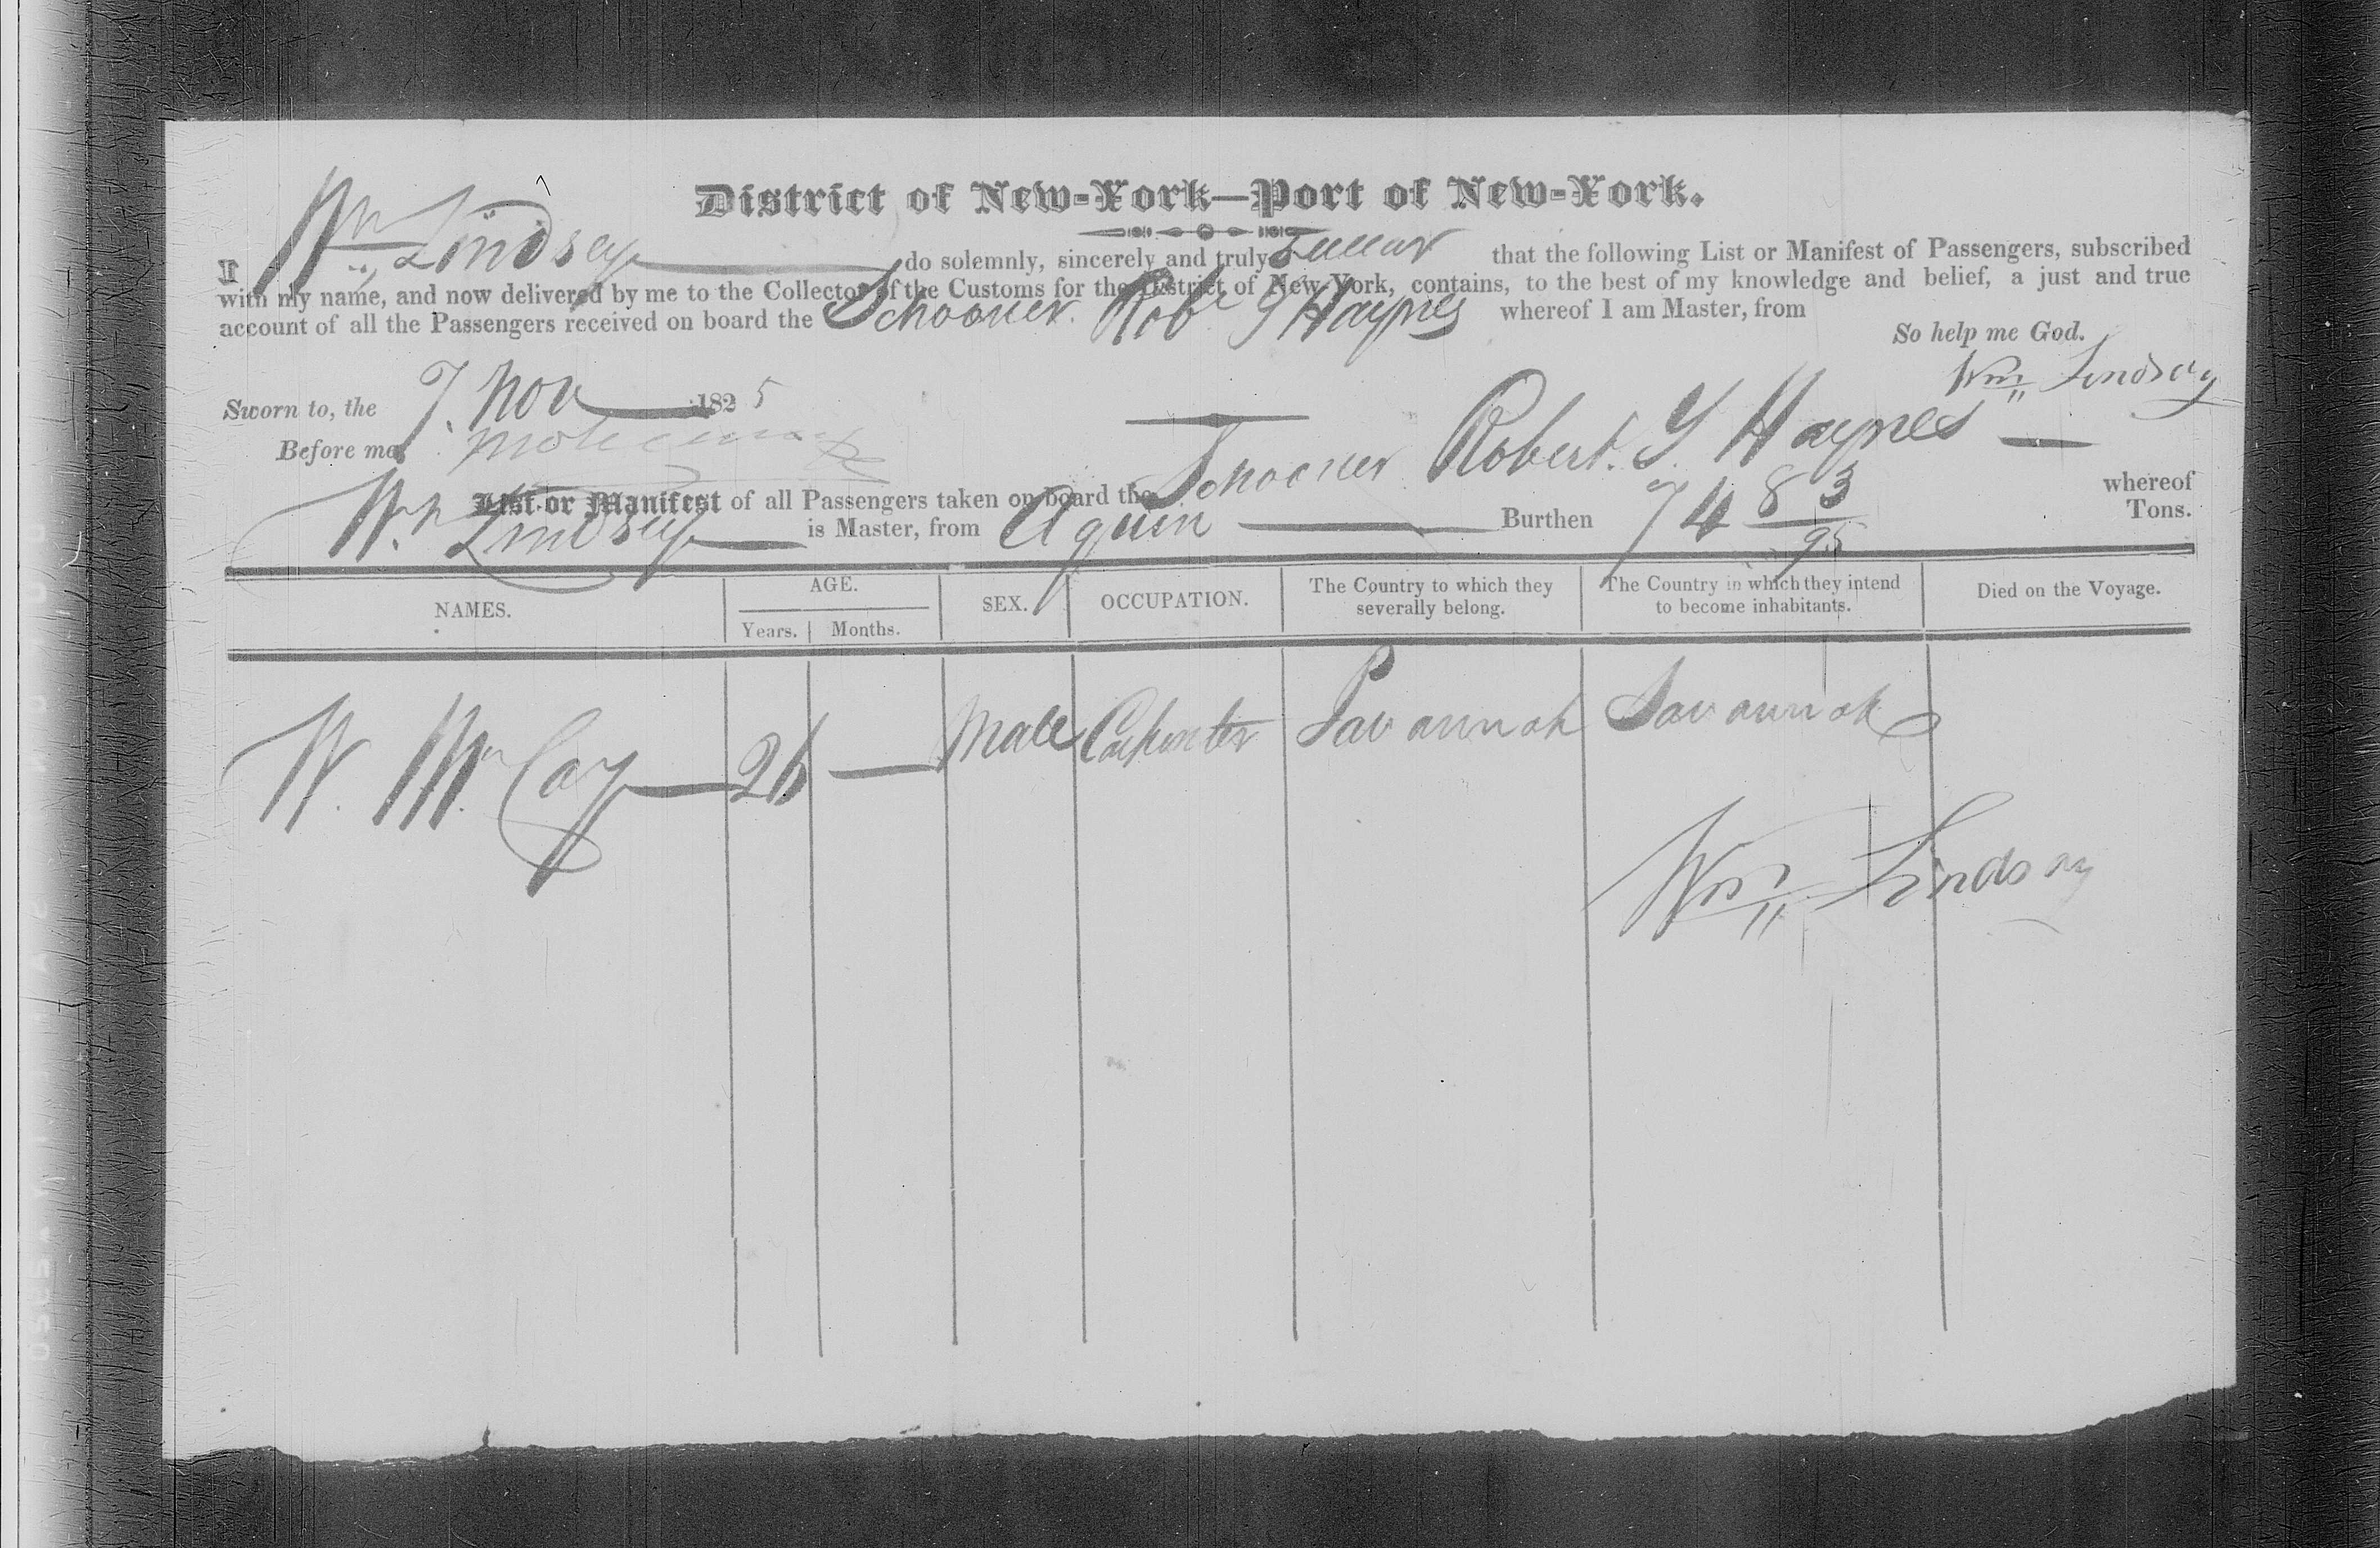 District of New-York—Port of New-York.
I Wm Lindsay do solemnly, sincerely and truly Swear that the following List or Manifest of Passengers, subscribed
with my name, and now delivered by me to the Collector of the Customs for the District of New-York, contains, to the best of my knowledge and belief, a just and true
account of all the Passengers received on board the Schooner Robt Y Haynes whereof I am Master, from
So help me God.
Wm Lindsay
Sworn to, the 7 Nov 1825
Before me
List or Manifest of all Passengers taken on board the Schooner Robert Y Haynes whereof
Wm Lindsay is Master, from Aquin Burthen 74 83/95 Tons.
NAMES. AGE. Years. Months. SEX. OCCUPATION. The Country to which they severally belong. The Country in which they intend to become inhabitants. Died on the Voyage.
W. McCoy 26 — Male Carpenter Savannah Savannah
Wm Lindsay